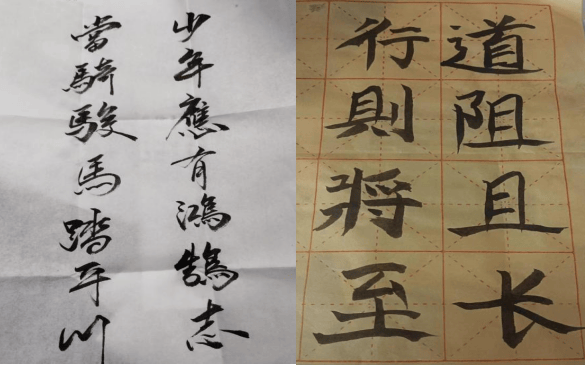 少年應有鴻鵠志
當騎駿馬踏平川
道阻且长
行則將至